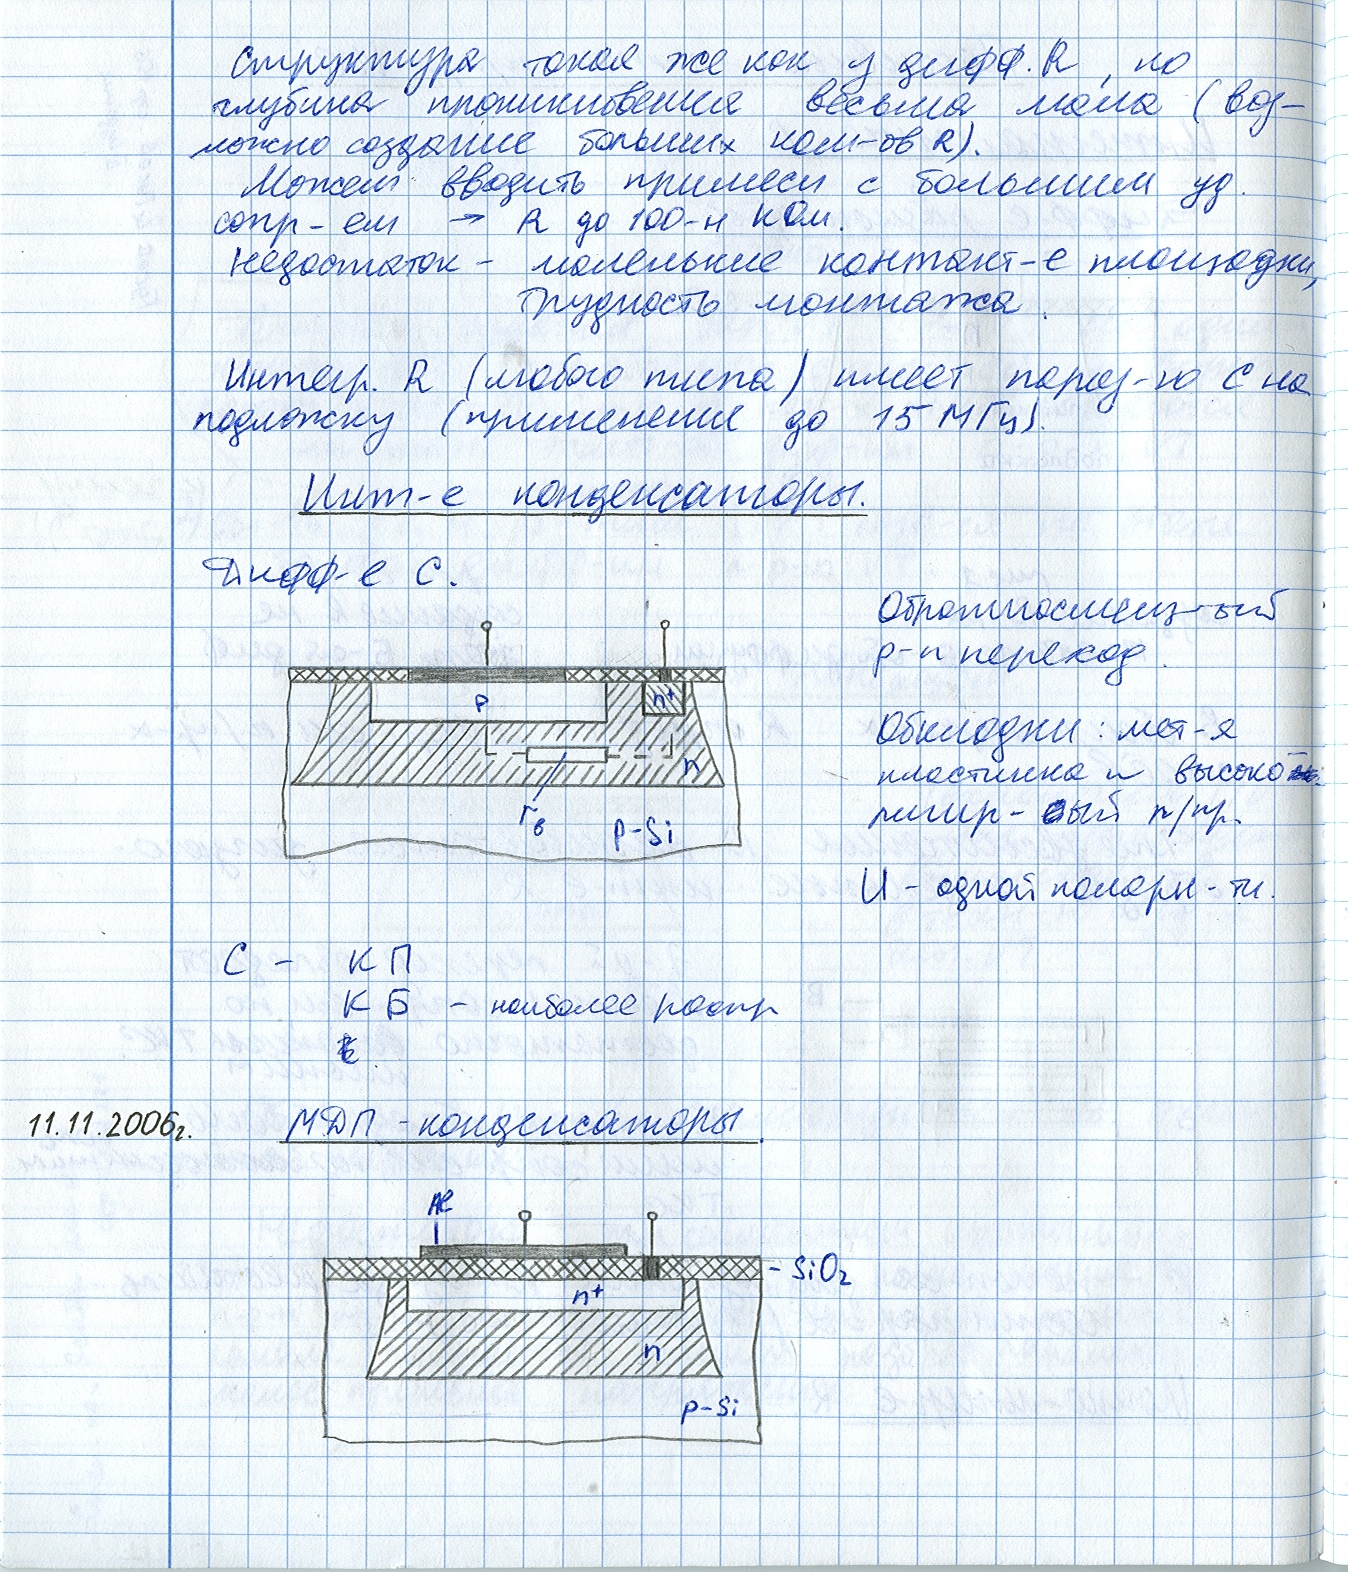 Структура такая же как у дифф. R, но
глубина проникновения весьма мала (воз-
можно создание больших ном-ов R).
Можем вводить примеси с большим уд.
сопр-ем → R до 100-н кОм.
Недостаток - маленькие контакт-е площадки,
трудность монтажа.
Интегр. R (любого типа) имеет параз-ю C на
подложку (применение до 15 МГц).
Инт-е конденсаторы.
Дифф-е C.
Обратносмещ-ый
p-n переход.
p
n+
n
rв
p-Si
Обкладки: мет-я
пластина и высоко
легир-ый п/пр.
U - одной полярн-ти.
C - КП
КБ - наиболее распр
11.11.2006г.
МДП-конденсаторы.
Al
- SiO2
n+
n
p-Si